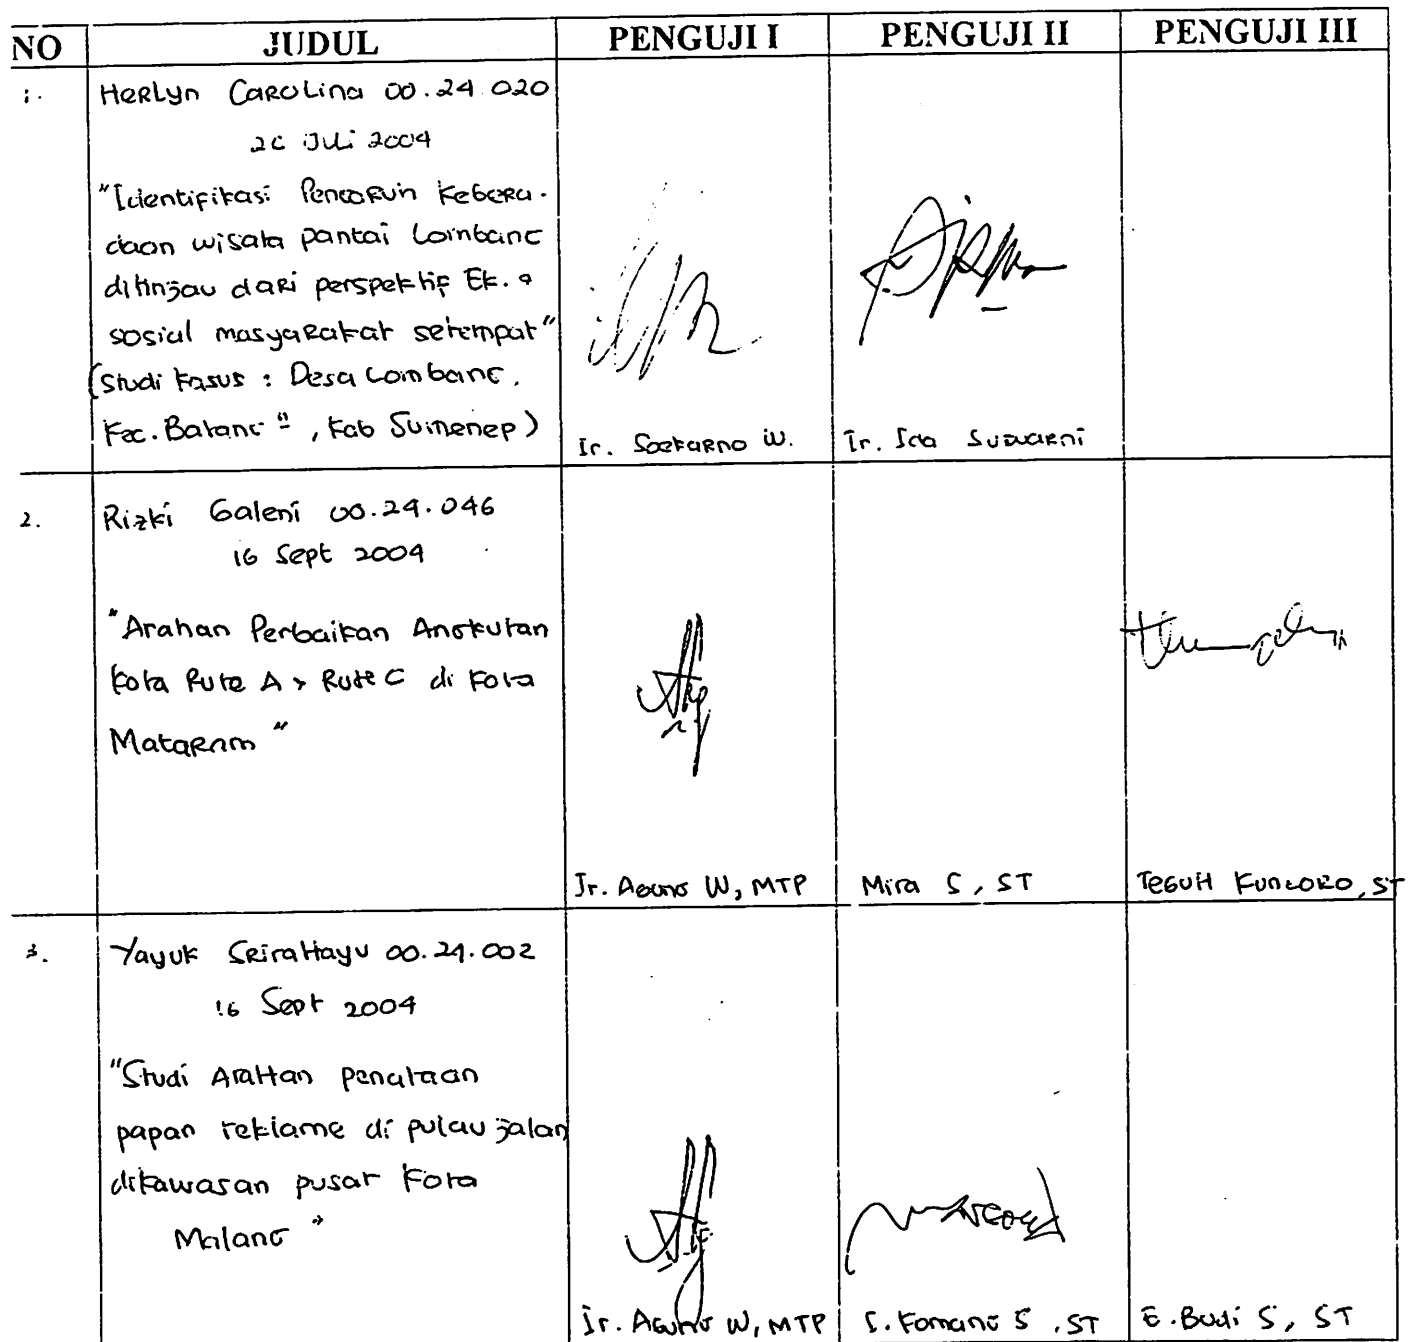 NO JUDUL PENGUJI I PENGUJI II PENGUJI III
1. Herlyn Carolina 00.24.020
20 Juli 2004
"Identifikasi Pengaruh Kebera-
daan wisata pantai Lombang
ditinjau dari perspektif Ek. &
sosial masyarakat setempat"
(Studi kasus : Desa Lombang,
Kec. Batang", Kab Sumenep)
Ir. Soekarno W. Ir. Ida Suwarni
2. Rizki Galeni 00.24.046
16 Sept 2004
"Arahan Perbaikan Angkutan
Kota Rute A & Rute C di Kota
Mataram"
Ir. Agung W, MTP Mira S, ST Teguh Kuncoro, ST
3. Yayuk Srirahayu 00.24.002
16 Sept 2004
"Studi Arahan penataan
papan reklame di pulau jalan
dikawasan pusat Kota
Malang"
Ir. Agung W, MTP I. Komang S, ST E. Budi S, ST